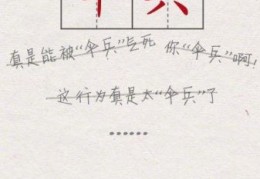 伞兵
真是能被“伞兵”气死 你“伞兵”啊!
这行为真是太“伞兵”了
······